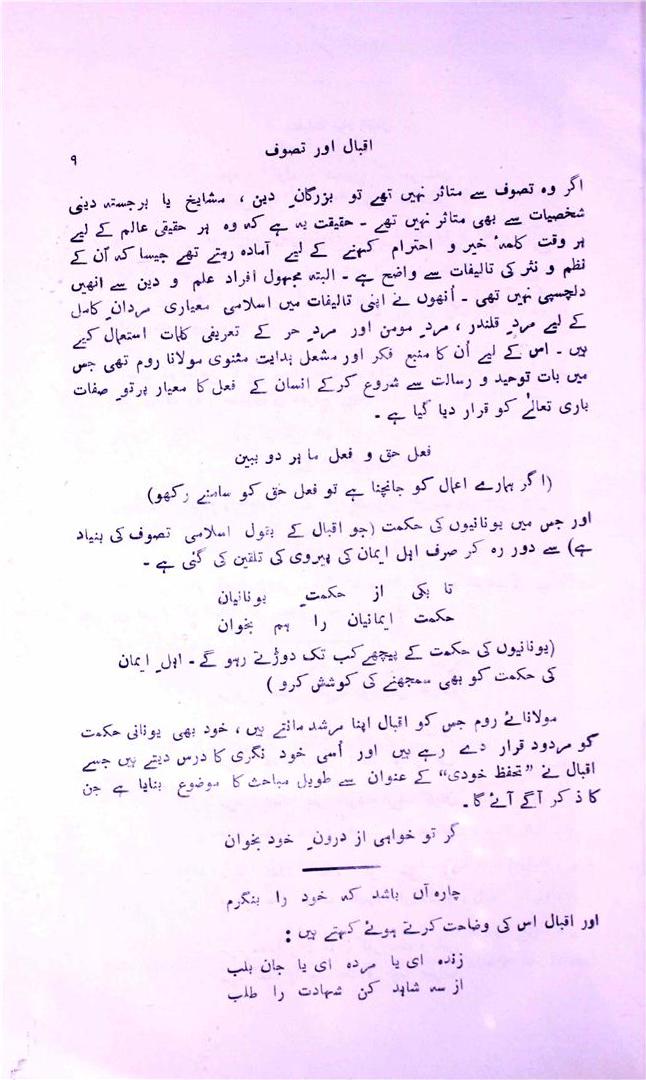 اقبال اور تصوف ۹
اگر وہ تصوف سے متاثر نہیں تھے تو بزرگانِ دین ، مشایخ یا برجستہ دینی
شخصیات سے بھی متاثر نہیں تھے ۔ حقیقت یہ ہے کہ وہ ہر حقیقی عالم کے لیے
ہر وقت کلمۂ خیر و احترام کہنے کے لیے آمادہ رہتے تھے جیسا کہ اُن کے
نظم و نثر کی تالیفات سے واضح ہے ۔ البتہ مجہول افراد علم و دین سے انھیں
دلچسپی نہیں تھی ۔ اُنھوں نے اپنی تالیفات میں اسلامی معیاری مردانِ کامل
کے لیے مردِ قلندر ، مردِ مومن اور مردِ حر کے تعریفی کلمات استعمال کیے
ہیں ۔ اس کے لیے اُن کا منبع فکر اور مشعل ہدایت مثنوی مولانا روم تھی جس
میں بات توحید و رسالت سے شروع کرکے انسان کے فعل کا معیار پرتوِ صفات
باری تعالیٰ کو قرار دیا گیا ہے ۔
فعل حق و فعل ما ہر دو ببین
(اگر ہمارے اعمال کو جانچنا ہے تو فعل حق کو سامنے رکھو)
اور جس میں یونانیوں کی حکمت (جو اقبال کے بقول اسلامی تصوف کی بنیاد
ہے) سے دور رہ کر صرف اہل ایمان کی پیروی کی تلقین کی گئی ہے ۔
تا بکی از حکمتِ یونانیان
حکمت ایمانیان را ہم بخوان
(یونانیوں کی حکمت کے پیچھے کب تک دوڑتے رہو گے ۔ اہلِ ایمان
کی حکمت کو بھی سمجھنے کی کوشش کرو )
مولانائے روم جس کو اقبال اپنا مرشد مانتے ہیں ، خود بھی یونانی حکمت
کو مردود قرار دے رہے ہیں اور اُسی خود نگری کا درس دیتے ہیں جسے
اقبال نے ”تحفظ خودی“ کے عنوان سے طویل مباحث کا موضوع بنایا ہے جن
کا ذکر آگے آئے گا ۔
گر تو خواہی از درونِ خود بخوان
چارہ آں باشد کہ خود را بنگرم
اور اقبال اس کی وضاحت کرتے ہوئے کہتے ہیں :
زندہ ای یا مردہ ای یا جان بلب
از سہ شاہد کن شہادت را طلب